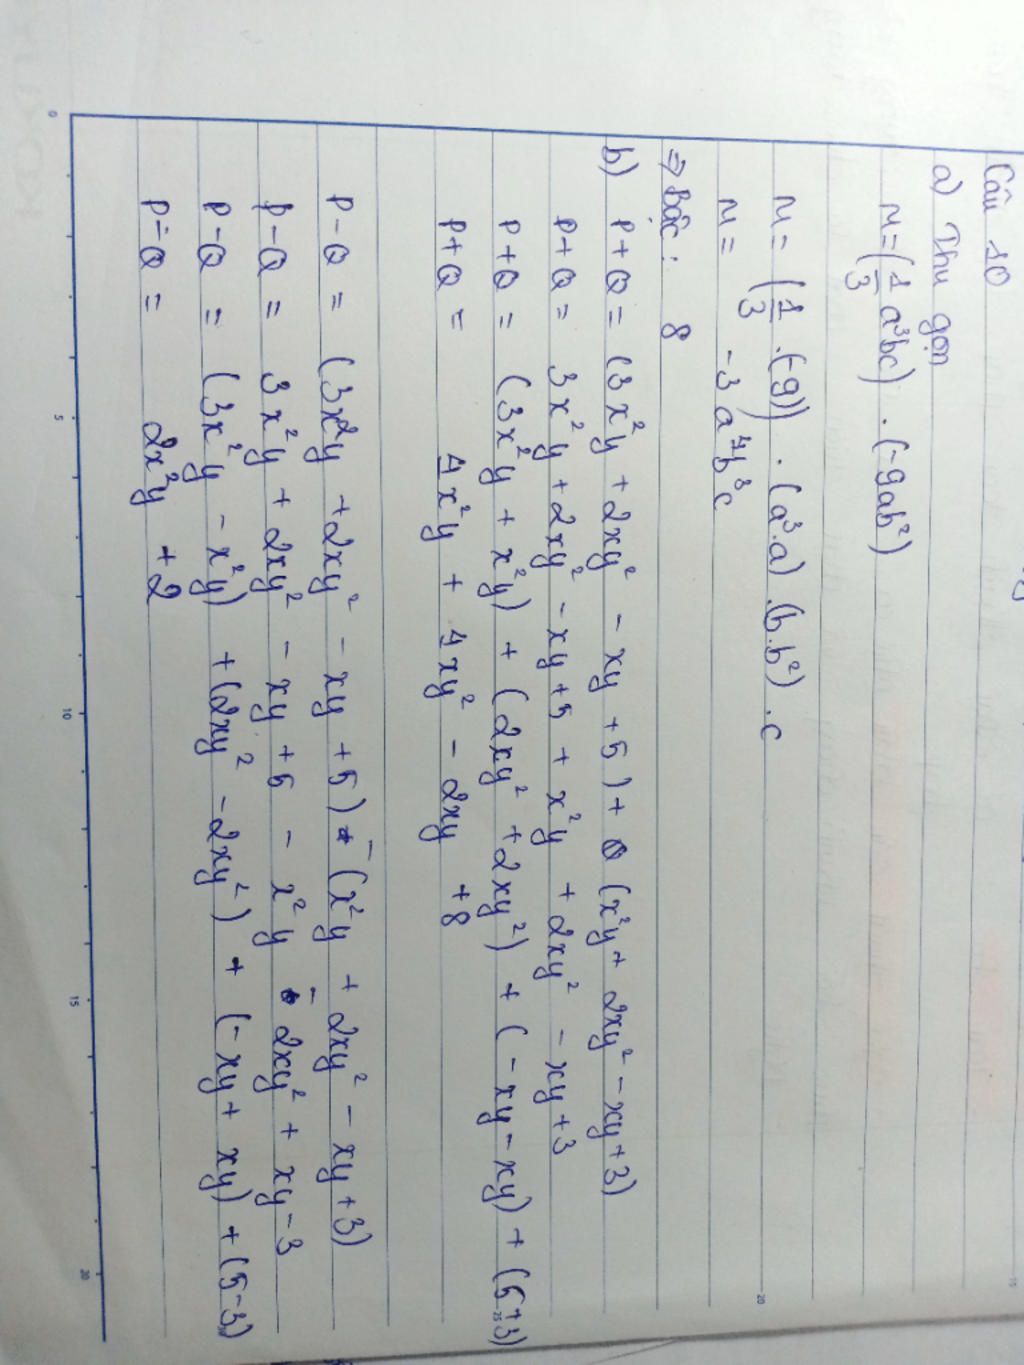 Câu 10
a) Thu gọn
M = (1/3 a³bc) . (-9ab²)
M = (1/3 . (-9)) . (a³.a) . (b.b²) . c
M = -3 a⁴b³c
⇒ Bậc : 8
b) P + Q = (3x²y + 2xy² - xy + 5) + (x²y + 2xy² - xy + 3)
P + Q = 3x²y + 2xy² - xy + 5 + x²y + 2xy² - xy + 3
P + Q = (3x²y + x²y) + (2xy² + 2xy²) + (-xy - xy) + (5 + 3)
P + Q = 4x²y + 4xy² - 2xy + 8
P - Q = (3x²y + 2xy² - xy + 5) - (x²y + 2xy² - xy + 3)
P - Q = 3x²y + 2xy² - xy + 5 - x²y - 2xy² + xy - 3
P - Q = (3x²y - x²y) + (2xy² - 2xy²) + (-xy + xy) + (5 - 3)
P - Q = 2x²y + 2
0 5 10 15 20